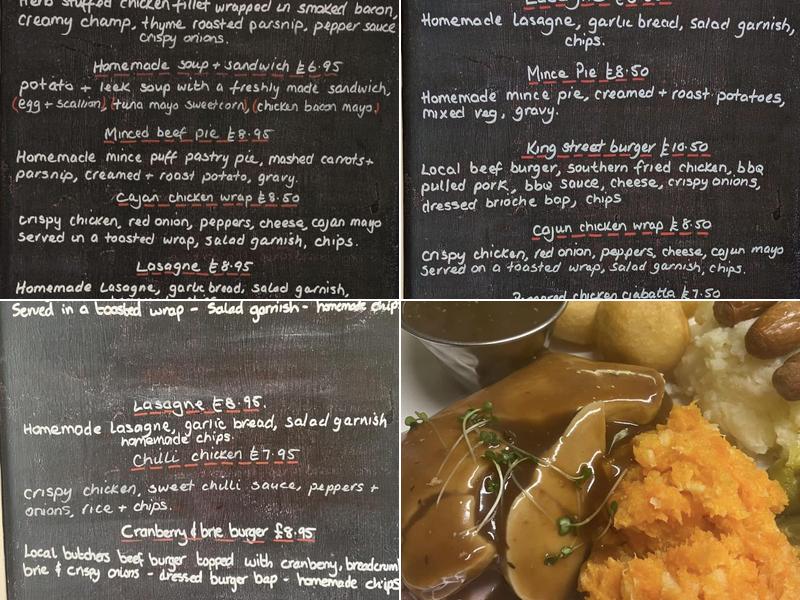 Herb stuffed chicken fillet wrapped in smoked bacon,
creamy champ, thyme roasted parsnip, pepper sauce
crispy onions.
Homemade soup + sandwich £6.95
potato + leek soup with a freshly made sandwich,
(egg + scallion) (tuna mayo sweetcorn), (chicken bacon mayo)
Minced beef pie £8.95
Homemade mince puff pastry pie, mashed carrots +
parsnip, creamed + roast potato, gravy.
Cajan chicken wrap £8.50
crispy chicken, red onion, peppers, cheese, cajan mayo
served in a toasted wrap, salad garnish, chips.
Lasagne £8.95
Homemade Lasagne, garlic bread, salad garnish,
Homemade Lasagne, garlic bread, salad garnish,
chips.
Mince Pie £8.50
Homemade mince pie, creamed + roast potatoes,
mixed veg, gravy.
King street burger £10.50
Local beef burger, southern fried chicken, bbq
pulled pork, bbq sauce, cheese, crispy onions,
dressed brioche bap, chips
Cajun chicken wrap £8.50
crispy chicken, red onion, peppers, cheese, cajun mayo
served on a toasted wrap, salad garnish, chips.
chicken ciabatta £7.50
Served in a toasted wrap - Salad garnish - homemade chips
Lasagne £8.95.
Homemade Lasagne, garlic bread, salad garnish
homemade chips.
Chilli chicken £7.95
Crispy chicken, sweet chilli sauce, peppers +
onions, rice + chips.
Cranberry & brie burger £8.95
Local butchers beef burger topped with cranberry, breadcrum
brie & crispy onions - dressed burger bap - homemade chips